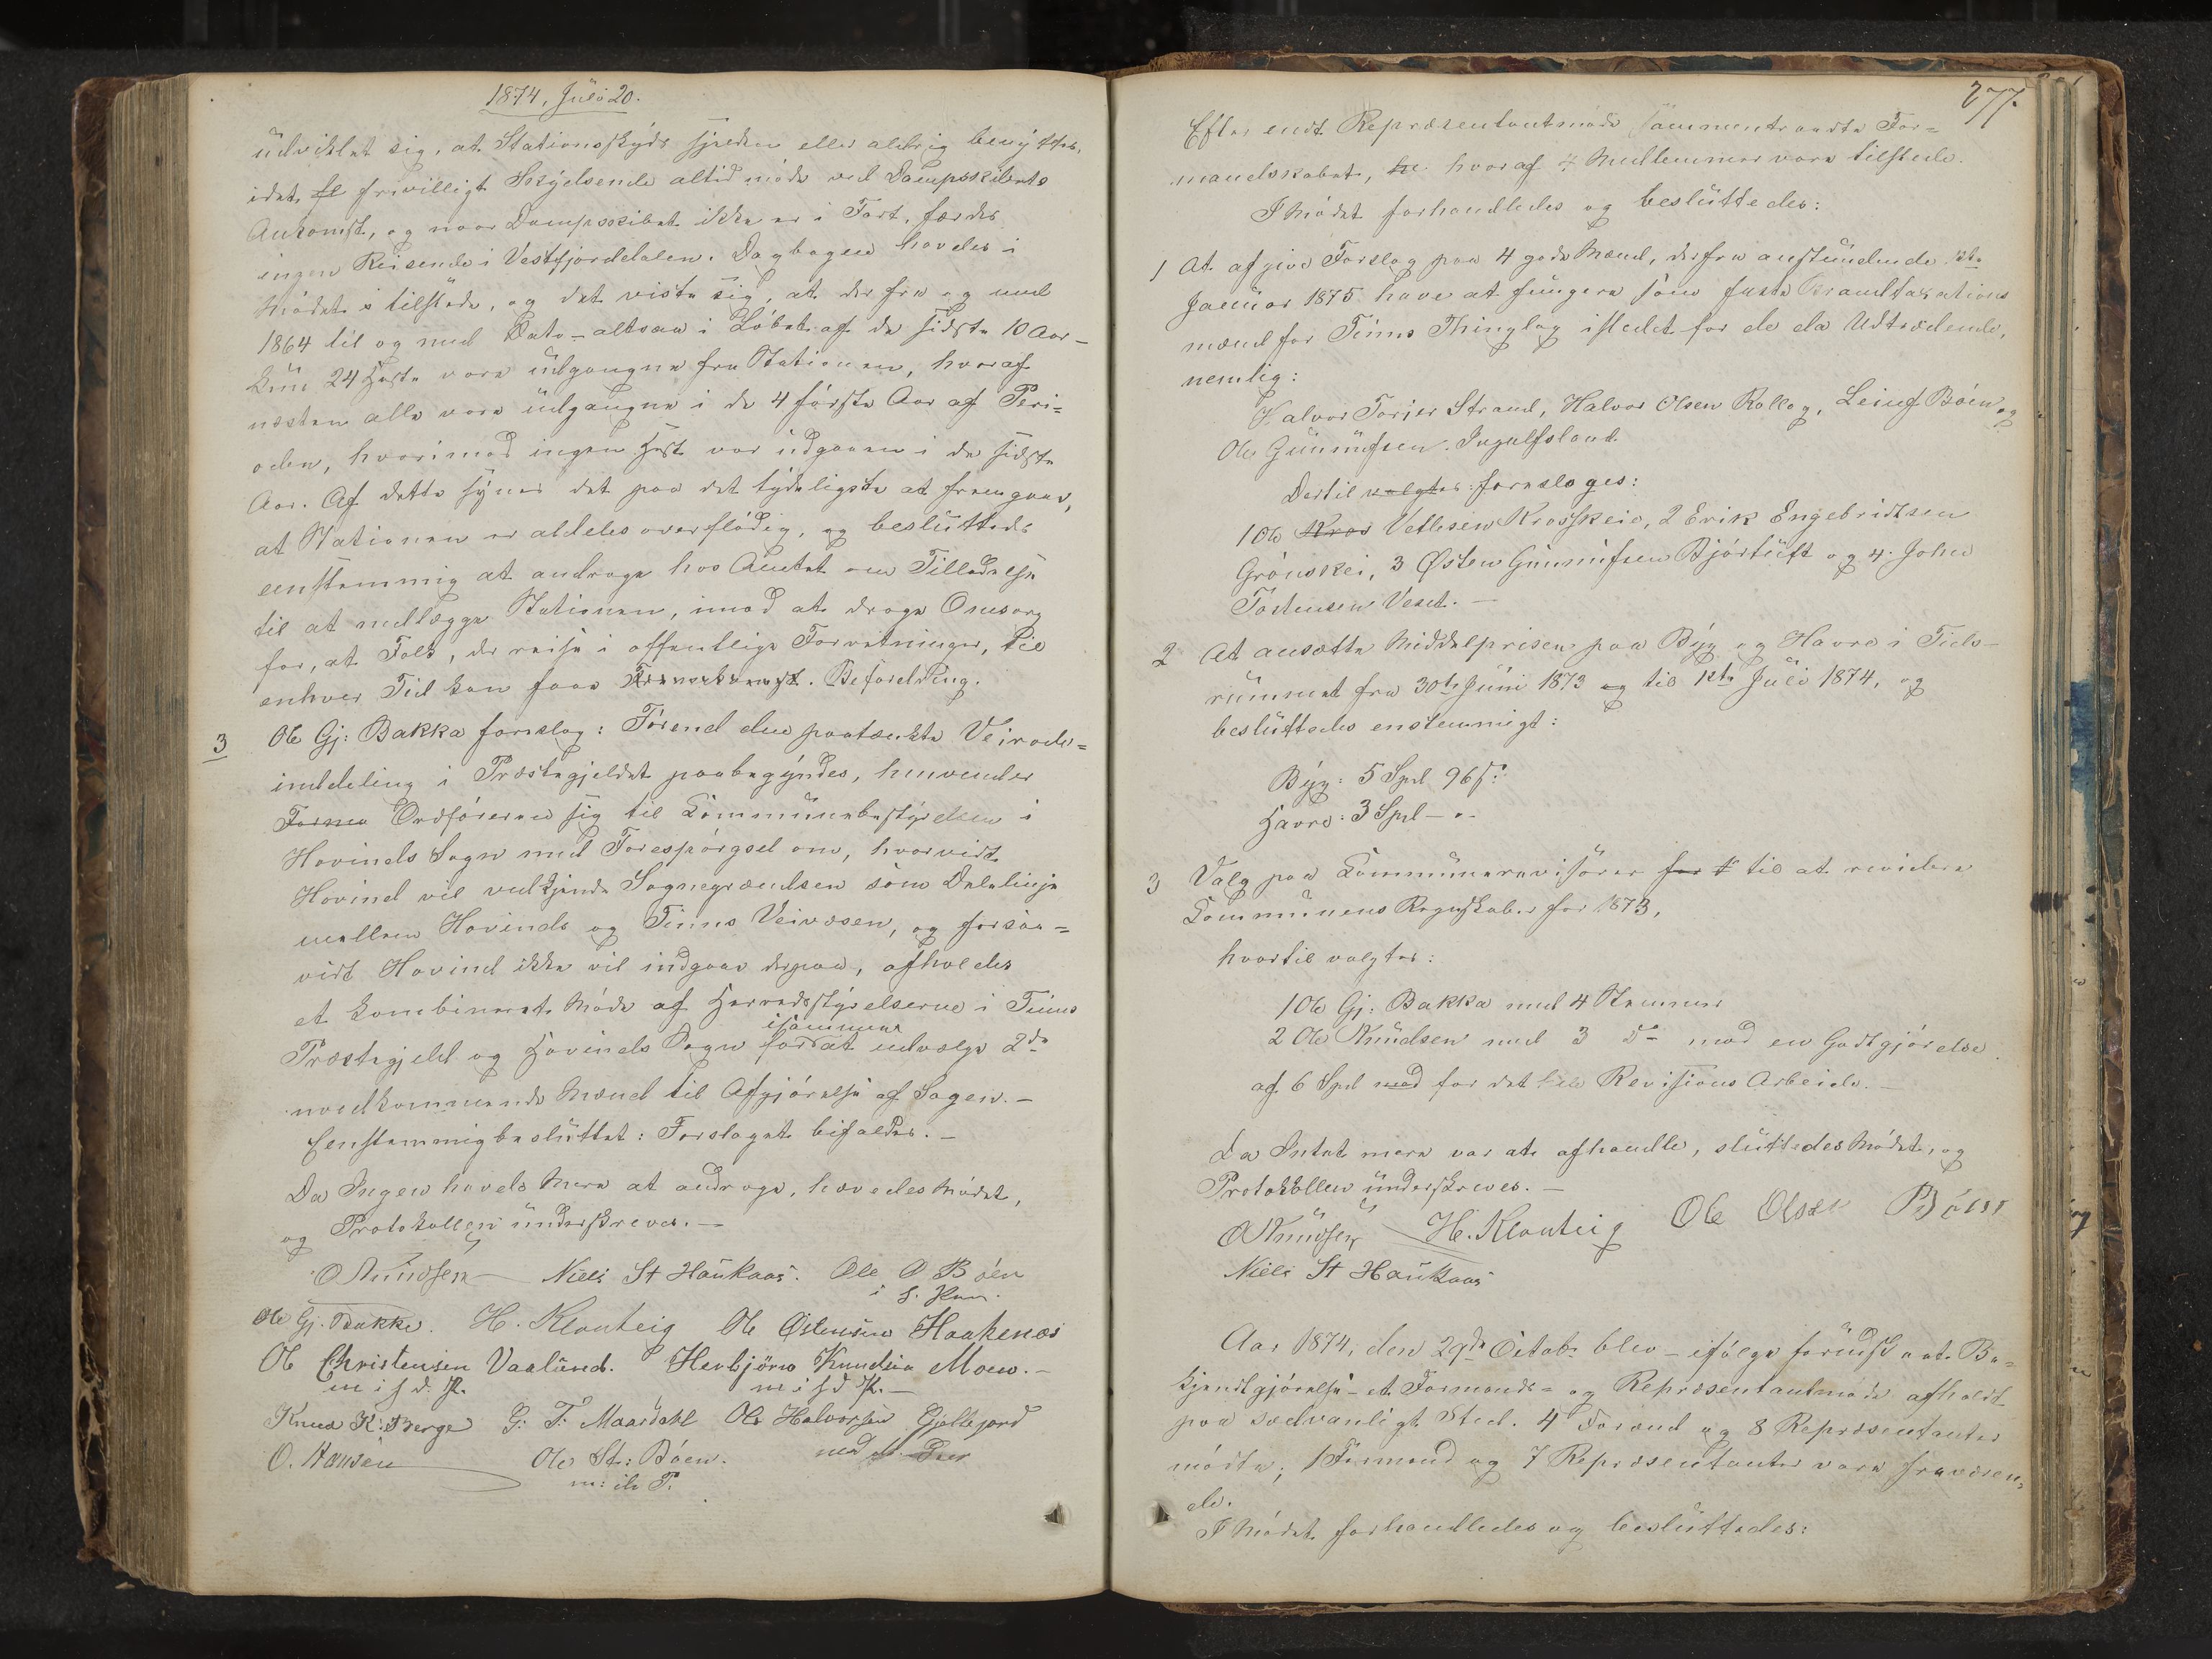 1874, Juli 20.
udviklet sig, at Stationsskyds sjelden eller aldrig benyttes,
idet fl frivilligt Skydsende altid møde ved Dampskibets
Ankomst, og naar Dampskibet ikke er i Fart, færdes
ingen Reisende i Vestfjorddalen. Dagbogen havdes i
Mødet tilstede, og det viste sig, at der fra og med
1864 til og med Dato - altsaa i Løbet af de sidste 10 Aar -
kun 24 Heste vare udgangne fra Stationen, hvoraf
næsten alle vare udgangne i de 4 første Aar af Peri=
oden, hvorimod ingen Hest var udgaaen i de sidste
Aar. Af dette synes det paa det tydeligste at fremgaae,
at Stationen er aldeles overflødig, og besluttedes
eenstemmig at andrage hos Amtet om Tilladelse
til at nedlægge Stationen, imod at drage Omsorg
for, at Folk, der reise i offentlige Forretninger, til
enhver Tid kan faae Befordring.
3 Ole Gj: Bakka foreslog: Førend den paatænkte Veirode=
inddeling i Præstegjeldet paabegyndes, henvender
Ordføreren sig til Kommunebestyrelsen i
Hovinds Sogn med Forespørgsel om, hvorvidt
Hovind vil vedkjende Sognegrændsen som Delelinje
mellem Hovinds og Tinns Veivæsen, og forsaa=
vidt Hovind ikke vil indgaae derpaa, afholdes
et kombineret Møde af Herredsstyrelserne i Tinns
isammen
Præstegjeld og Hovinds Sogn for at udvælge 2de
uvedkommende Mænd til Afgjørelse af Sagen. -
Eenstemmig besluttet: Forslaget bifaldes. -
Da Ingen havde Mere at andrage, hævedes Mødet,
og Protokollen underskreves. -
O Knudsen Niels St Haukaas. Ole O Bøen
Ole Gj. Bakka. H. Klouteig Ole Østensen Haakenæs
Ole Christensen Vaalund. Herbjörn Knudsen Moen. -
m i f d. P. m i f d P. -
Knud K: Berge G: T: Maardahl Ole Halvorsen Gjellejord
O. Hansen Ole St: Bøen.
277.
Efter endt Repræsentantmøde sammentraadte For=
mandskabet, hvoraf 4 Medlemmer vare tilstede.
I Mødet forhandledes og besluttedes:
1 At afgive Forslag paa 4 gode Mænd, der fra anstundende 1ste
Januar 1875 have at fungere som faste Brandtaxations
mænd for Tinns Thinglag istedet for de da Udtrædende,
nemlig:
Halvor Torjer Strand, Halvor Olsen Rollag, Leiuf Bøen og
Ole Gunnufsen Ingulfsland.
Dertil valgtes: foresloges:
1 Ole Kros Vetlesen Krosskeie, 2 Erik Engebridtsen
Grønskei, 3 Østen Gunnufsen Bjørtuft og 4. John
Tostensen Veset. -
2 At ansætte Middelprisen paa Byg og Havre i Tids-
rummet fra 30te Juni 1873 og til 1ste Juli 1874, og
besluttedes enstemmigt:
Byg: 5 Spd 96 s:
Havre: 3 Spd - " -
3 Valg paa Kommunerevisorer for t til at revidere
Kommunens Regnskaber for 1873,
hvortil valgtes:
1 Ole Gj: Bakka med 4 Stemmer
2 Ole Knudsen med 3 Do mod en Godtgjørelse
af 6 Spd mod for det hele Revisions Arbeide. -
Da Intet mere var at afhandle, sluttedes Mødet, og
Protokollen underskreves. -
O Knudsen H. Klouteig Ole Olsen Bøen
Niels St Haukaas
Aar 1874, den 29de Octobr blev - ifølge forudskeet Be=
kjendtgjørelse - et Formands= og Repræsentantmøde afholdt
paa sædvanligt Sted. 4 Formænd og 8 Repræsentanter
mødte; 1 Formand og 7 Repræsentanter vare fraværen,
de.
I Mødet forhandledes og besluttedes: